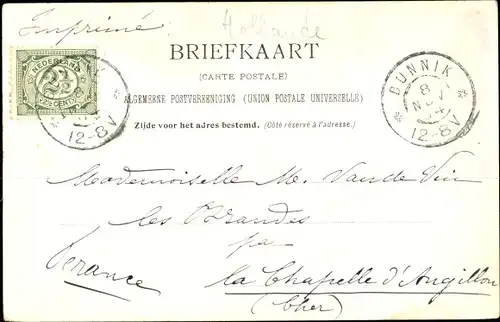 Imprimé
Hollande
NEDERLAND
2½
2½ CENT
BRIEFKAART
(CARTE POSTALE)
ALGEMEENE POSTVEREENIGING (UNION POSTALE UNIVERSELLE)
Zijde voor het adres bestemd. (Côté réservé à l'adresse.)
12-8V
BUNNIK
8
NOV
04
12-8V
Mademoiselle M. Van de Vin
les Brandes
par
la Chapelle d'Angillon
(Cher)
France